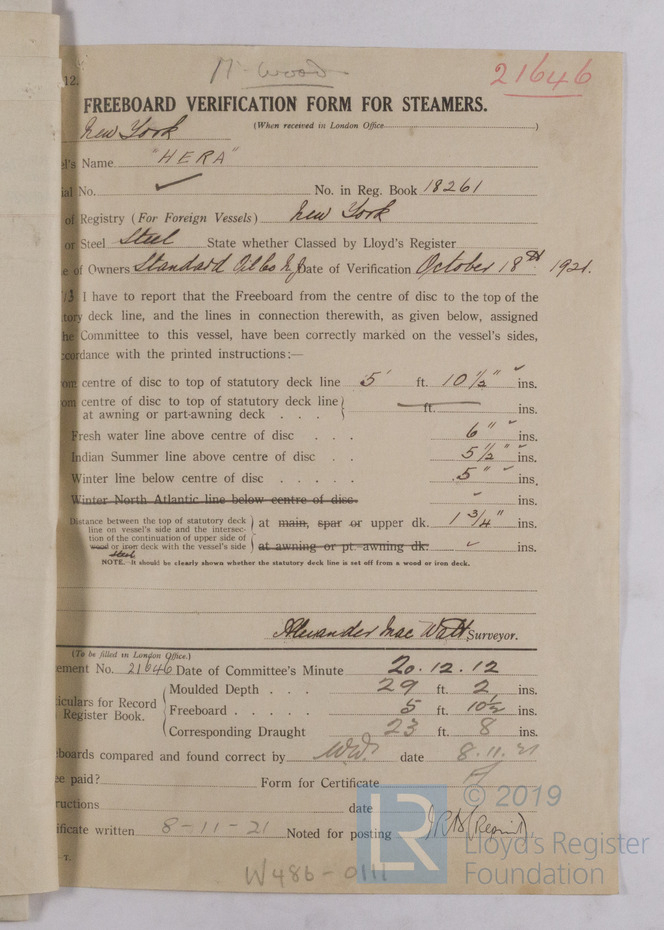 Mr Wood
12.
21646
FREEBOARD VERIFICATION FORM FOR STEAMERS.
New York (When received in London Office )
el's Name "HERA"
ial No. ✓ No. in Reg. Book 18261
of Registry (For Foreign Vessels) New York
or Steel Steel State whether Classed by Lloyd's Register
e of Owners Standard Oil Co N.J. Date of Verification October 18th 1921.
I have to report that the Freeboard from the centre of disc to the top of the
tory deck line, and the lines in connection therewith, as given below, assigned
he Committee to this vessel, have been correctly marked on the vessel's sides,
ccordance with the printed instructions:—
om centre of disc to top of statutory deck line 5' ft. 10 1/2" ins.
om centre of disc to top of statutory deck line
at awning or part-awning deck . . . ft. ins.
Fresh water line above centre of disc . . . 6" ins.
Indian Summer line above centre of disc . . 5 1/2" ins.
Winter line below centre of disc . . . . . 5" ins.
Winter North Atlantic line below centre of disc. ins.
Distance between the top of statutory deck
line on vessel's side and the intersec-
tion of the continuation of upper side of
wood or iron deck with the vessel's side
steel
at main, spar or upper dk. 1 3/4" ins.
at awning or pt. awning dk. ins.
NOTE. It should be clearly shown whether the statutory deck line is set off from a wood or iron deck.
Alexander Mac Watt Surveyor.
(To be filled in London Office.)
ement No. 21646 Date of Committee's Minute 20.12.12
ticulars for Record
Register Book.
Moulded Depth . . . 29 ft. 2 ins.
Freeboard . . . . . 5 ft. 10 1/2 ins.
Corresponding Draught 23 ft. 8 ins.
eboards compared and found correct by W.W. date 8.11.21
ee paid? Form for Certificate A
ructions date
ificate written 8-11-21 Noted for posting (Reprint)
T.
W486-0111
LR
© 2019
Lloyd's Register
Foundation